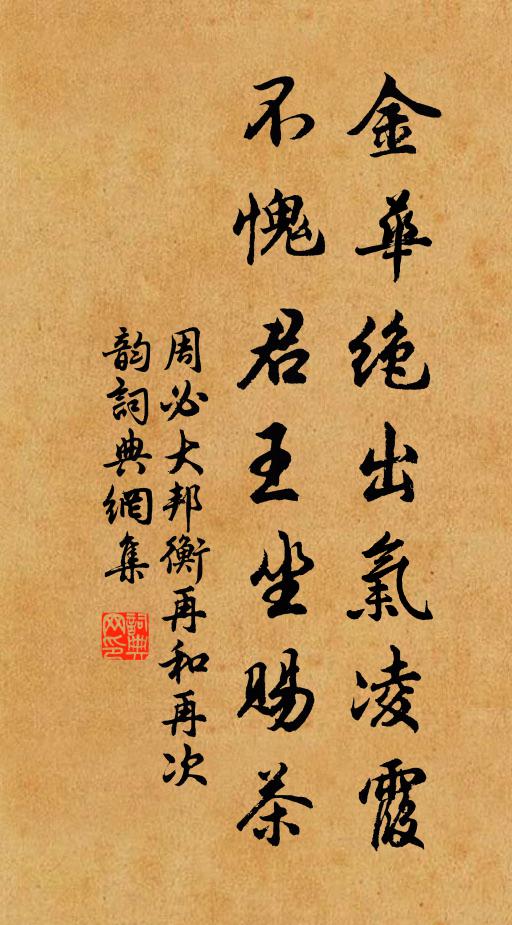 金華絶出氣凌霞
不愧君王坐賜茶
周必大邦衡再和再次
韵詞典網集
詞典網印